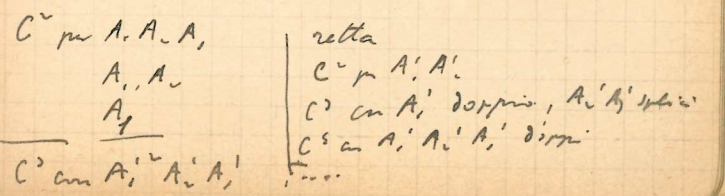 C² per A₁ A₂ A₃
A₁, A₂
A₁
C³ con A₁'² A₂' A₃'
retta
C² per A₁' A₂'
C³ con A₁' doppio, A₂' A₃' semplici
C⁵ con A₁' A₂' A₃' doppi